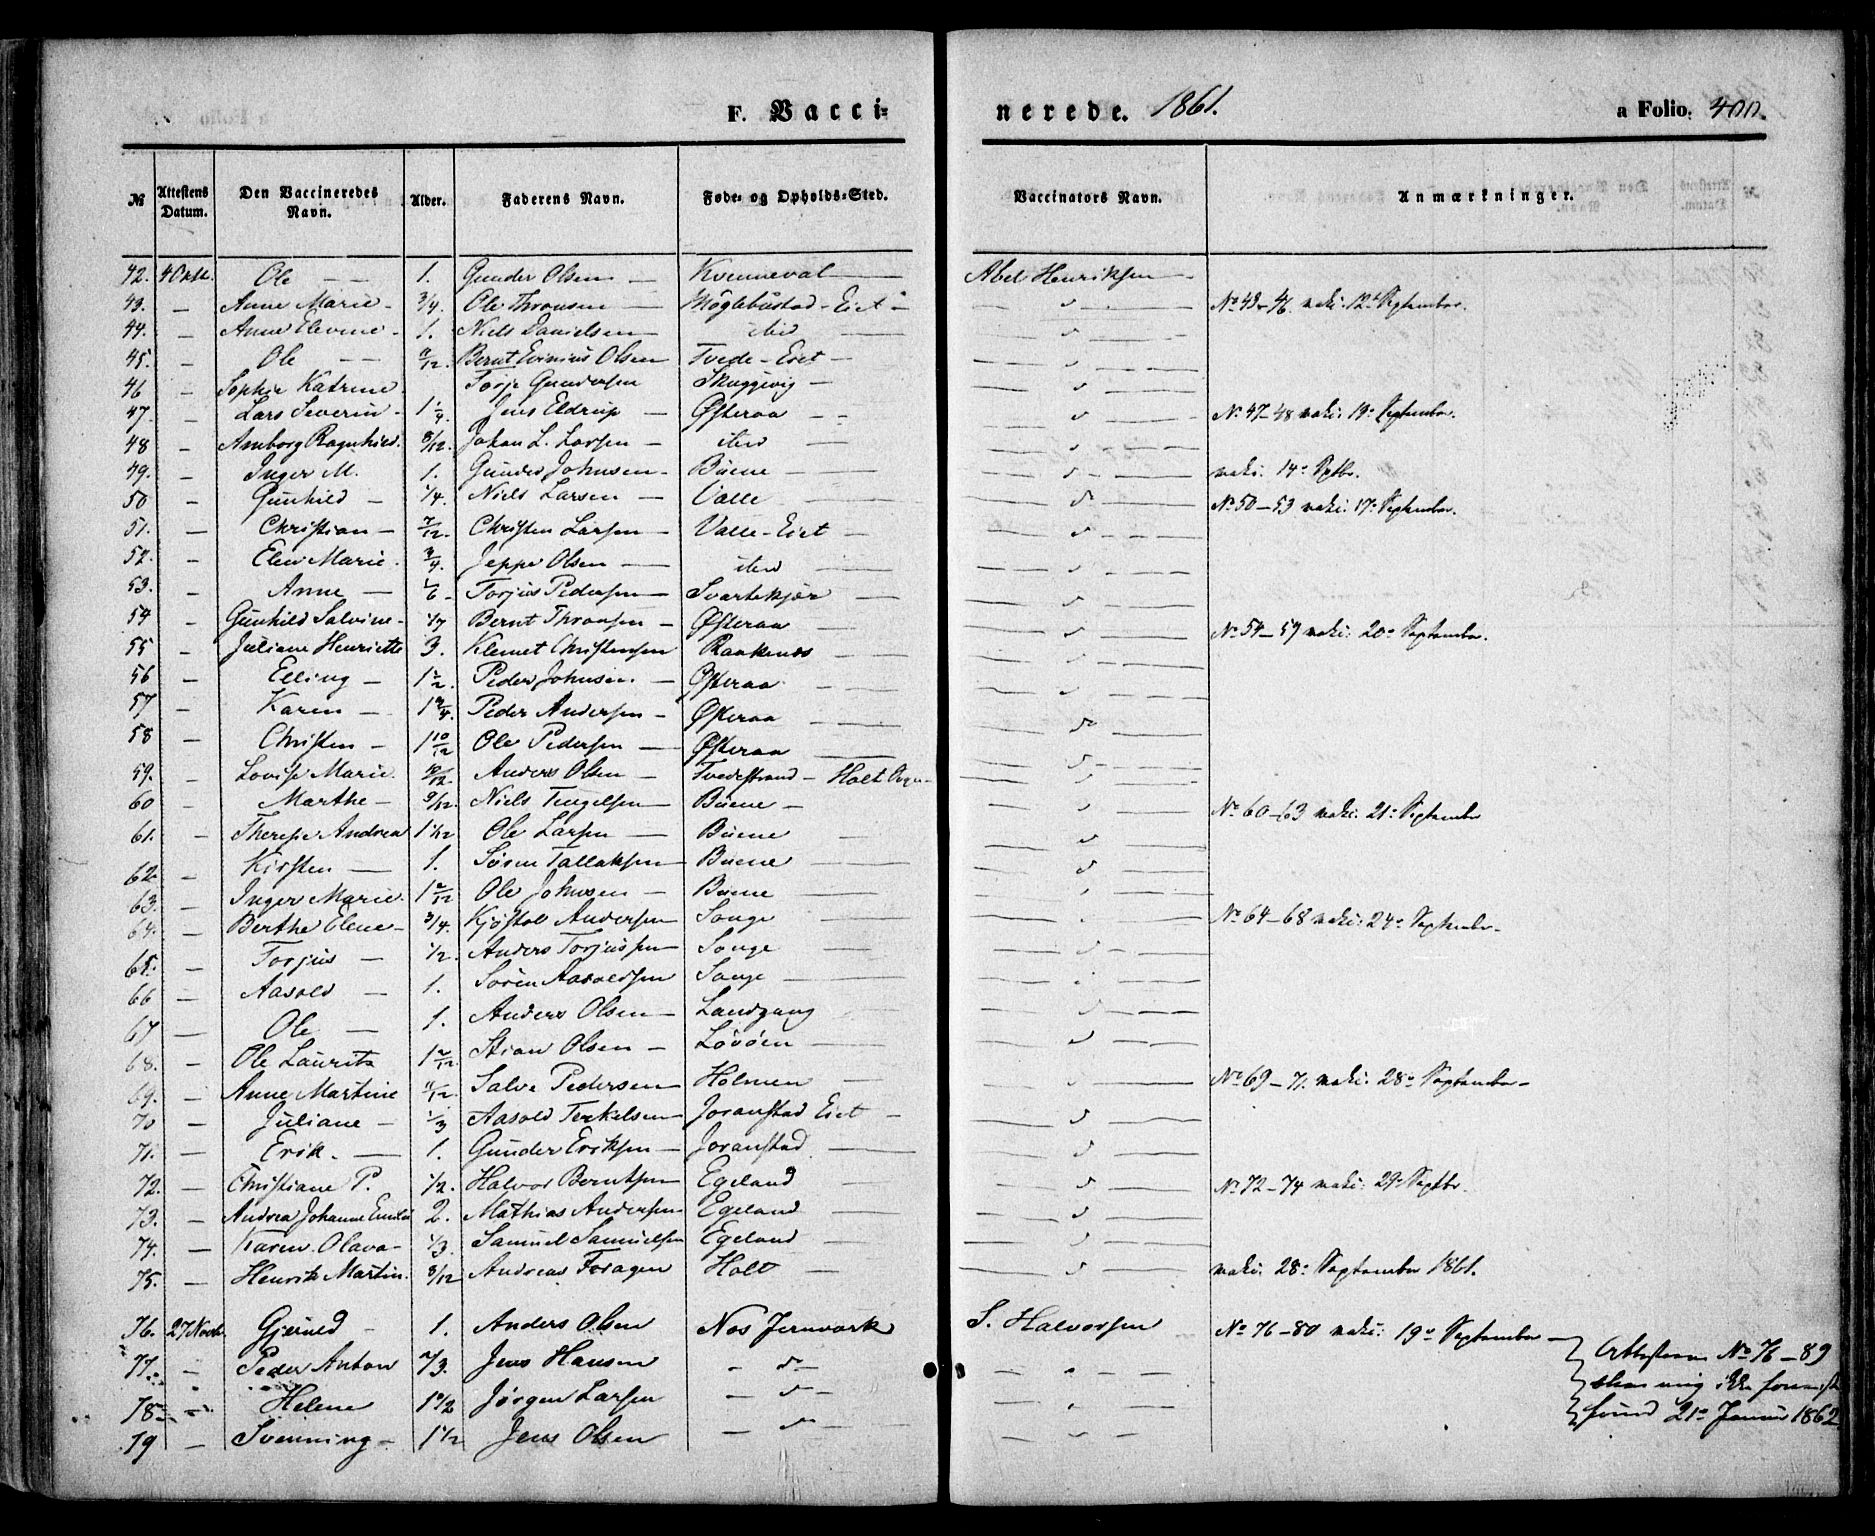 F. Vaccinerede. 1861. a Folio. 400.
№ Attestens Datum. Den Vaccineredes Navn. Alder. Faderens Navn. Føde- og Opholds-Sted. Vaccinators Navn. Anmærkninger.
42. 4 Oktb. Ole — — 1. Gunder Olsen — Kvenneval — Abel Henriksen —
43. — Anne Marie — 3/4. Ole Thronsen — Møglebustad-Eiet — " — No 43-46 vakc: 12te September.
44. — Anne Elevine — 1. Niels Danielsen — ibid — " —
45. — Ole — — 11/12. Bernt Evinius Olsen Tvede-Eiet — " —
46 — Sophie Katrine Torje Gundersen Skuggevig — " —
47. — Lars Severin — 1 1/4. Jens Eldrup — Østeraa — " — No 47-48 vakc: 13de September.
48 — Amborg Ragnhild. 8/12. Johan L. Larsen — ibid — " —
49. — Inger M. 1. Gunder Johnsen — Buene — " — vakc: 14de Sptbr.
50 — Gunhild — 1/4. Niels Larsen — Valle — " — No 50-53 vakc: 17de September.
51. — Christian — 7/12. Christen Larsen — Valle-Eiet — " —
52. — Elen Marie. 3/4. Jeppe Olsen — ibid — " —
53. — Anne — 1/6 Torjus Pedersen — Svartekjær — " —
54 — Gunhild Salvine — 1/7 Bernt Thronsen — Østeraa — " — No 54-59 vakc: 20de September.
55 — Juliane Henriette 3. Klemet Christensen Raakenes — " —
56 — Elling — 1 1/2. Peder Johnsen — Østeraa — " —
57 — Karen — 1 3/4. Peder Andersen — Østeraa — " —
58 — Christen — 1 10/12 Ole Pedersen — Østeraa — " —
59. — Lovise Marie. 10/12. Anders Olsen — Tvedestrand — Holt Sogn — " —
60 — Marthe — 9/12. Niels Tengelsen — Buene — " — No 60-63 vakc: 21de September
61. — Therese Andrea 1 1/12 Ole Larsen — Buene — " —
62. — Kirsten — 1. Søren Tallaksen — Buene — " —
63. — Inger Marie. 1 2/12 Ole Johnsen — Buene — " —
64. — Berthe Elene — 3/4. Kjøstol Andersen Songe — " — No 64-68 vakc: 24de September.
65. — Torjus — 1/2. Anders Torjussen — Songe — " —
66 — Aasold — 1. Søren Aasoldsen Songe — " —
67 — Ole — 1. Anders Olsen — Landgang — " —
68. — Ole Lauritz 1 2/12. Stian Olsen — Løvøen — " —
69. — Anne Martine 11/12. Salve Pedersen — Holmen — " — No 69-71. vakc: 28de September —
70 — Juliane — 1/3 Aasold Terkelsen — Joranstad Eiet — " —
71. — Erik. — 1. Gunder Eriksen — Joranstad — " —
72. — Christiane P. 1/2. Halvor Berntsen Egeland — " — No 72-74 vakc: 29de Septbr.
73. — Andrea Johanne Emilie 2. Mathias Andersen — Egeland — " —
74. — Karen Olava — 1/3. Samuel Samuelsen Egeland — " —
75. — Henrik Martin. 8/12 Andreas Foragen Holt — " — vakc: 28de September 1861.
76. 27 Novb. Gjeruld — 1. Anders Olsen Nes Jernværk S. Halvorsen — No 76-80 vakc: 19de September —
77. — Peder Anton 7/3. Jens Hansen — do — " — Attesterne No 76-89
78 — Helene 1 1/2 Jørgen Larsen — do — " — ere mig ikke forevist
79 — Svenning — 1 1/2 Jens Olsen — do — " — førend 21de Januar 1862